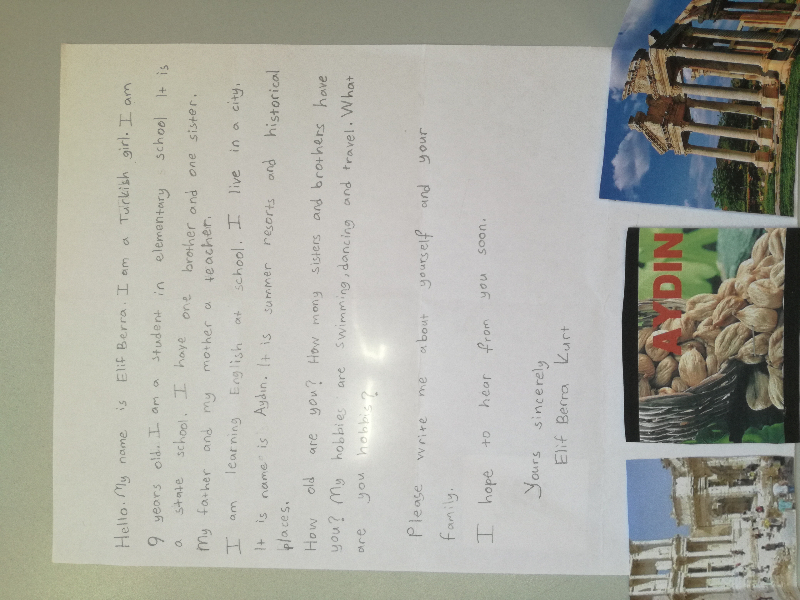 Hello. My name is Elif Berra. I am a Turkish girl. I am
9 years old. I am a student in elementary school It is
a state school. I have one brother and one sister.
My father and my mother a teacher.
I am learning English at school. I live in a city.
It is name is Aydın. It is summer resorts and historical
places.
How old are you? How many sisters and brothers have
you? My hobbies are swimming, dancing and travel. What
are you hobbis?
Please write me about yourself and your
family.
I hope to hear from you soon.
Yours sincerely
Elif Berra Kurt
AYDIN